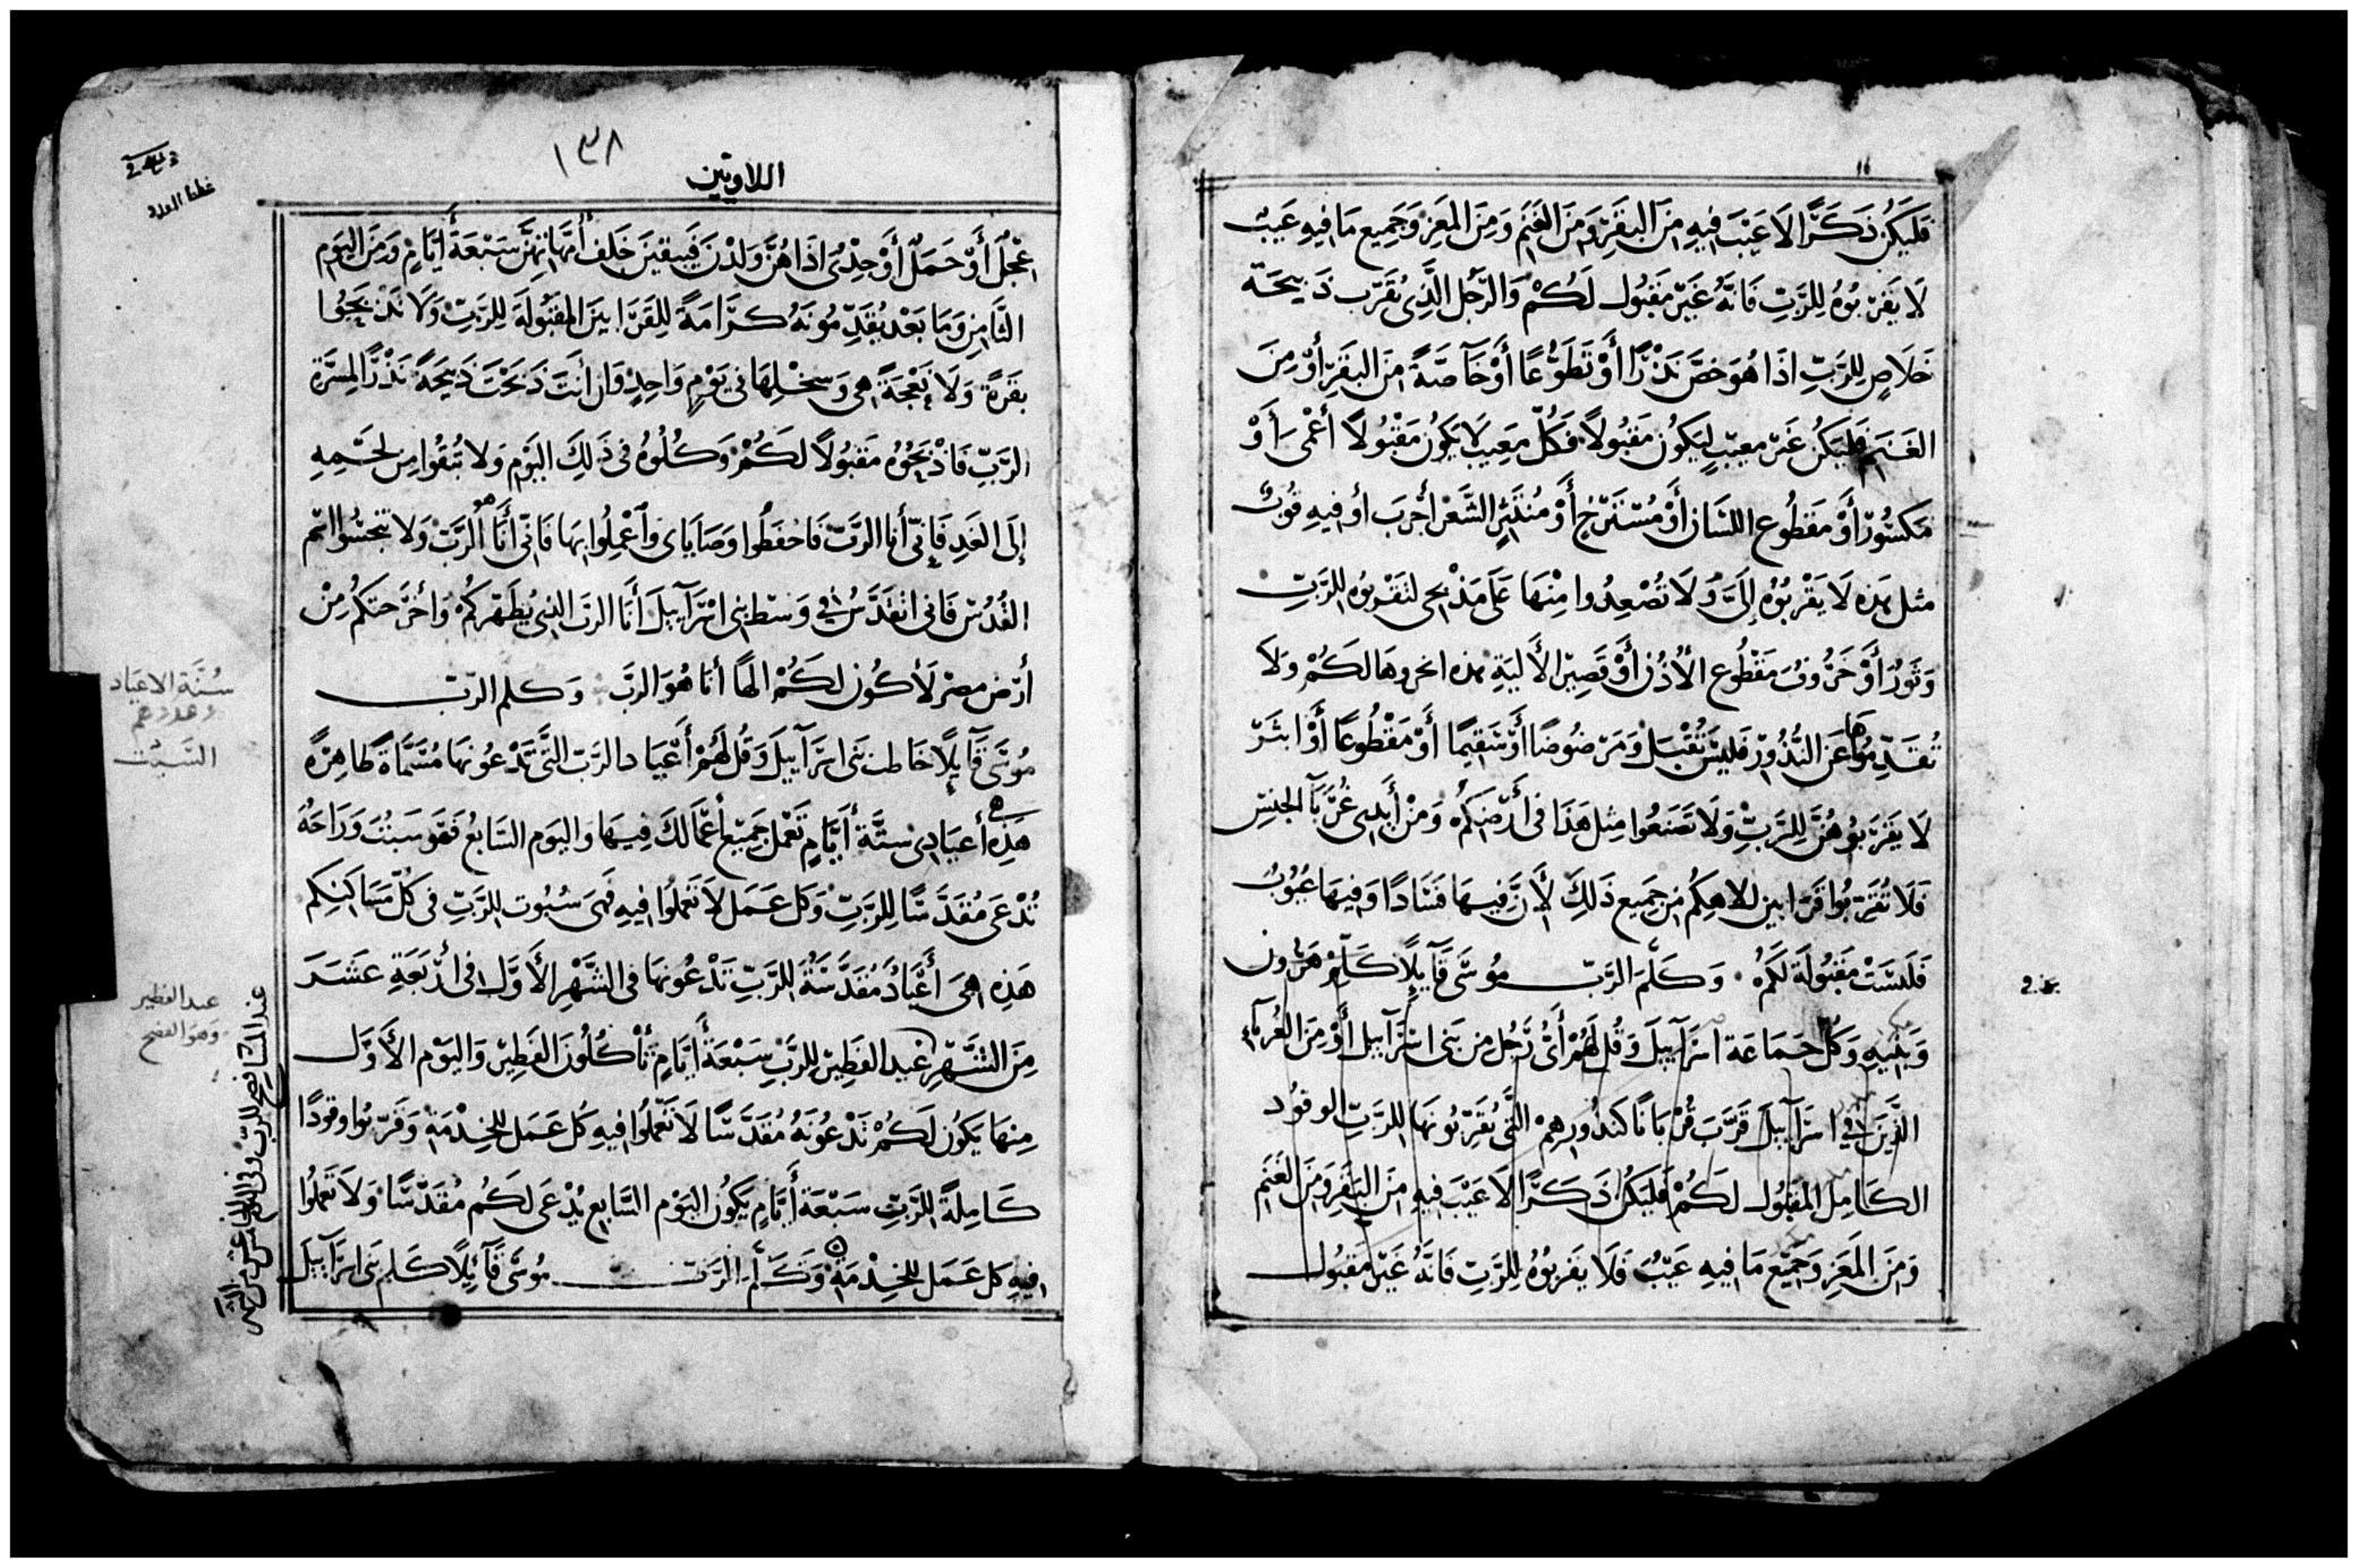 فَليَكُن ذَكَرًا لَا عَيْبَ فِيهِ مِنَ البَقَرِ وَمِنَ الغَنَمِ وَمِنَ المَعِز وَجَمِيع مَا فِيهِ عَيبٌ
لَا يَقربُوهُ لِلرَّبِّ فَانَّهُ غَيْر مَقبُول لَكُمْ وَالرَّجُل الَّذِى يُقَرّب ذَبِيحَة
خَلَاصٍ لِلرَّبِّ اذَا هُوَ خصَّ نَذْرًا أَوْ تَطَوُّعًا أَوْ خَآصَّةً مِنَ البَقَرِ أَوْ مِنَ
الغَنَم فَليَكُن غَيْر مَعِيبٍ لِيَكُون مَقبُولًا فَكُلّ مَعِيب لَا يَكُون مَقْبُولًا أَعْمَى أَوْ
مَكسُورًا أَوْ مَقطُوع اللسَان أَوْ أَوْ مُنتَثِر الشَّعْر أَجْرَب أو فِيهِ
مثل هَذِه لَا يَقْربُوهُ إِلَىَّ وَلَا تُصْعِدُوا مِنْهَا عَلَى مَذْبَحِى لتَقْربُوه لِلرَّبّ
وَثَورًا أَوْ خَرُوف مَقْطُوع الأُذُن أَوْ قَصِير الأَليَةِ هذه لَكُمْ وَلَا
تُقَدِّمُوهَا عَن النُّذُور فَليسَ تُقْبَل وَمَرضُوضًا أَوْ أَوْ مَقْطُوعًا أَوْ
لَا يَقرَبُوهُنَّ لِلرَّبِّ وَلَا تَصنَعُوا مِثل هَذَا فِى أَرْضكُمْ وَمنْ أَيدِى غُرَبَآ الجنس
فَلَا تُقَرّبُوا قَرَابِين لالاهِكُم مِن جَمِيع ذَلِكَ لأَنَّ فِيهَا فَسَادًا وَفِيهَا عُيُوبٌ
فَلَيسَتْ مَقبُولَة لَكُمْ وَكَلَّمَ الرَّبّ مُوسَى قَآيِلًا كَلِّمْ هَرُون
وَبَنِيهِ وَكُلّ جَمَاعَة اسرَآيِيلَ وَقُل لَهُمْ أَىُّ رَجُل مِن بَنِى اسْرَآيِيل أَوْ مِنَ الغُربَآء
الَّذِينَ فِى اسرَآيِيلَ قَرَّبَ قُرْبَانًا كَنذُورِهِمْ الَّتِى يُقَرّبُونَهَا لِلرَّبّ الوقُود
الكَامِل المَقبُول لَكُمْ فَليَكُن ذَكَرًا لَا عَيْبَ فِيهِ مِنَ البَقَرِ وَمِنَ الغَنَم
وَمِنَ المَعِزِ وَجَمِيع مَا فِيهِ عَيْبٌ فَلَا يَقربُوهُ لِلرَّبِّ فَانَّهُ غَيْر مَقبُول
١٣٨
اللاويين
عِجْلٌ أَوْ حَمَلٌ أَوْ جِدْىٌ اذَا هُنَّ وَلَدْنَ فَيبقينَ خَلف أُمَّهَاتِهِنَّ سَبْعَةَ أَيَّامٍ وَمِنَ اليَوم
الثَّامِنِ وَمَا بَعْد يُقَدِّمُونَهُ كَرَّامَةً لِلقَرَابِينَ المَقبُولَة لِلرَّبِّ وَلَا تَذْبَحُوا
بَقَرَةً وَلَا نَعْجَةً هِى وَسخْلِهَا فِى يَوْمٍ وَاحِدٍ وَان أَنتَ ذَبَحْتَ ذَبِيحَةً نَذْرًا لِمسَرَّة
الرَّبِّ فَاذْبَحُوهُ مَقبُولًا لَكُمْ وَكُلُوهُ فِى ذَلِكَ اليَوْم وَلا تُبقُوا مِن لحَمِهِ
إِلَى الغَدِ فَإِنِّى أَنا الرَّبّ فَاحفَظُوا وَصَايَاى وَاعْمِلُوا بِهَا فَانِّى أَنَا هو الرَّبّ وَلَا تنجسُوا اسم
القُدُّس فَانِى اتقَدَّسُ فِى وَسط بَنِى اسْرَآيِيلَ أَنَا الرَّبّ الذِى يُطَهركُمْ وَأَخرَجتكُم مِنْ
أَرْض مصر لَأَكُون لَكُمْ الهًا أَنَا هُوَ الرَّبّ وَكلم الرّبّ
مُوسَى قَآيِلًا خَاطب بَنِى اسرَآيِيلَ وَقُل لَهُمْ أَعْيَاد الرَّبّ الَّتِى تَدْعُونَهَا مُسَمَّاةً طَاهِرَةً
هَذِهِ هى أَعيَادِى ستَّة أَيَّامٍ تَعْمَل جَمِيع أَعْمَالكَ فِيهَا وَاليَوم السَّابعُ فَهوَ سَبتٌ وَرَاحَةٌ
تُدْعَى مُقَدَّسًا لِلرَّبِّ وَكل عَمَل لَا تَعْمَلُوا فِيهِ فَهِىَ سُبُوت لِلرَّبِّ فِى كُلّ مَسَاكنِكم
هَذِهِ هِىَ أَعْيَادٌ مُقَدَّسَةٌ لِلرَّبِّ تَدْعُونَهَا فِى الشَّهْرِ الأَوَّل فِى أَرْبَعَةِ عَشَرَ
مِنَ الشَّهْرِ عِيد الفَطِير لِلرَّبِّ سَبْعَةَ أَيَّامٍ تَأْكُلُونَ الفَطِيْر وَاليَوْم الأَوَّل
مِنهَا يَكُون لَكُمْ تَدْعُونَهُ مُقَدَّسًا لَا تَعْمَلُوا فِيهِ كُل عَمَل لِلخِدْمَة وَقَرِّبُوا وقُودًا
كَامِلَةً لِلرَّبِّ سَبْعَة أَيَّامٍ يَكُون اليَوْم السَّابِع يُدْعَى لَكُم مُقَدَّسًا وَلَا تَعْمَلُوا
فِيهِ كل عَمَل لِلخِدْمَة وَكَلَّمَ الرَّبّ مُوسَى قَآيِلًا كَلم بَنِى اسرَآيِيلَ
سُنَّة الاعيَاد
السَّبت
عيد الفطير
وَهو الفصح